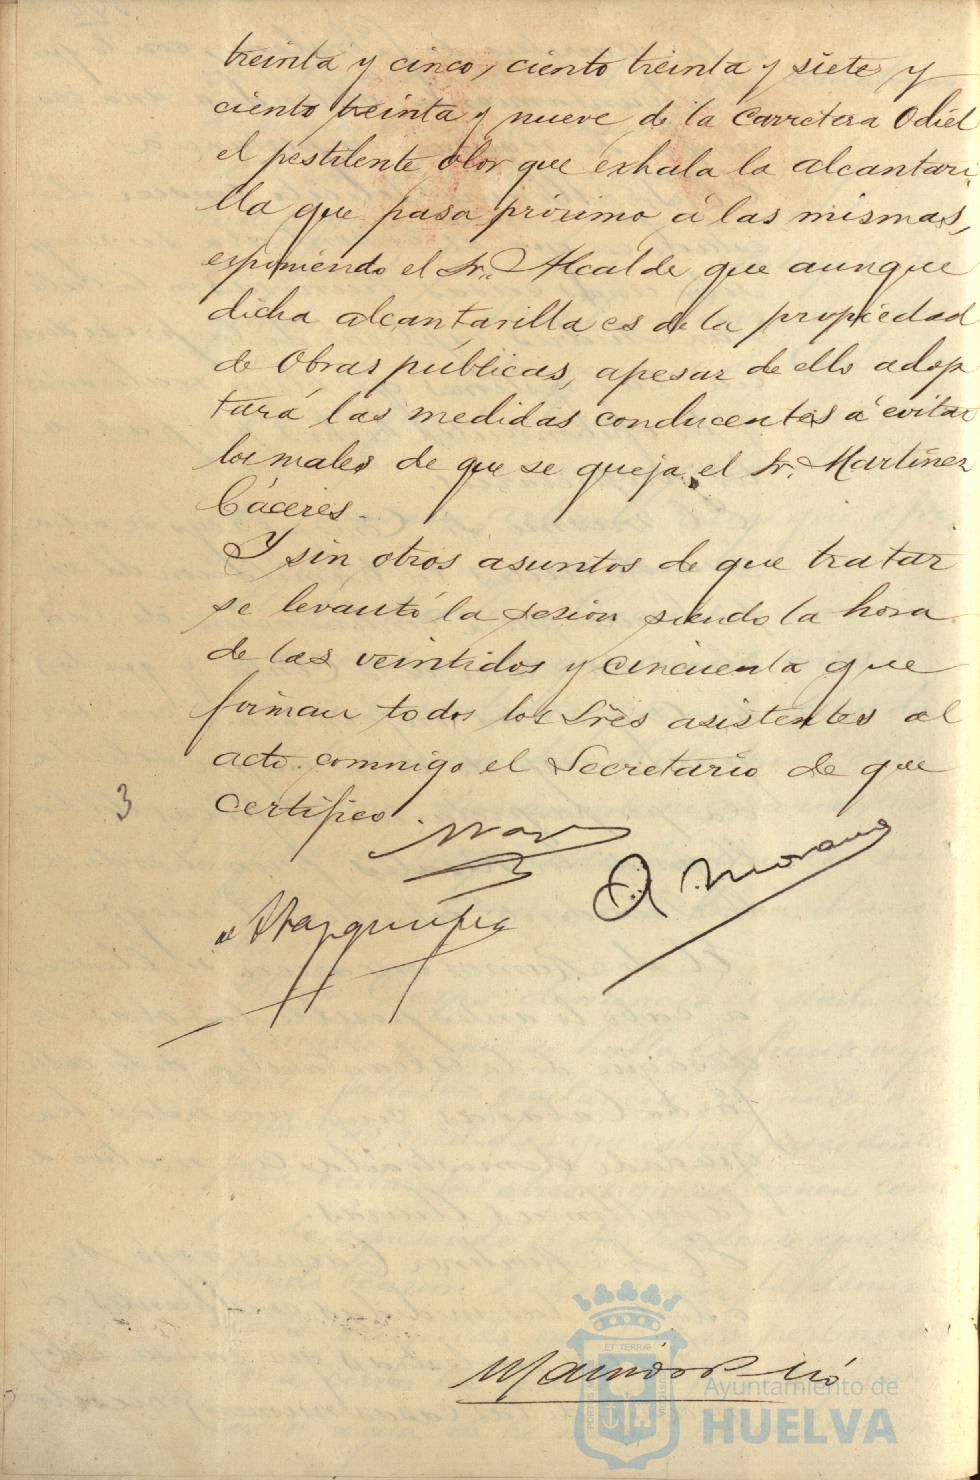 treinta y cinco, ciento treinta y siete y
ciento treinta y nueve de la Carretera Odiel
el pestilente olor que exhala la alcantari
lla que pasa próximo á las mismas,
esponiendo el Sr. Alcalde que aunque
dicha alcantarilla es de la propiedad
de Obras públicas, apesar de ello adop
tará las medidas conducentes á evitar
los males de que se queja el Sr. Martínez
Cáceres.
Y sin otros asuntos de que tratar
se levantó la sesion siendo la hora
de las veintidos y cincuenta que
firman todos los Sres asistentes al
acto conmigo el Secretario de que
certifico.
3
Moreno
ET TERRÆ
Ayuntamiento de
HUELVA